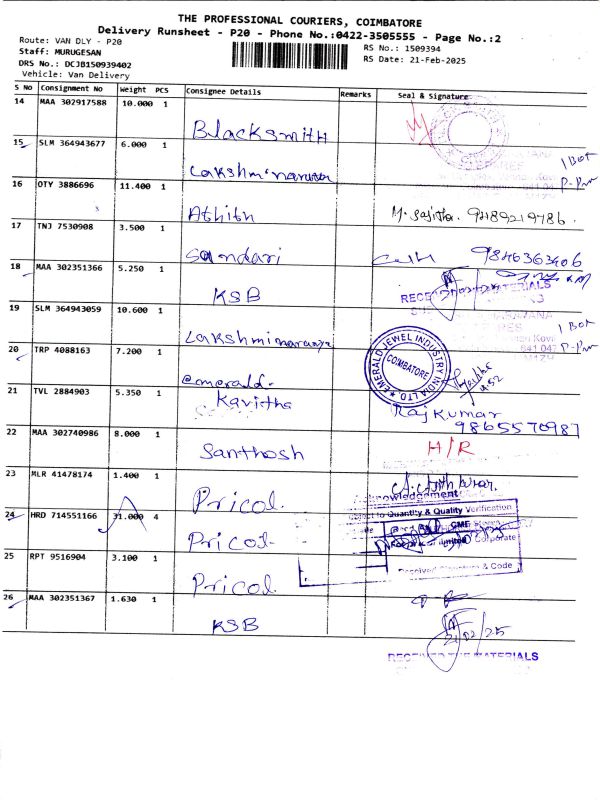 THE PROFESSIONAL COURIERS, COIMBATORE
Delivery Runsheet - P20 - Phone No.:0422-3505555 - Page No.:2
Route: VAN DLY - P20
RS No.: 1509394
Staff: MURUGESAN
RS Date: 21-Feb-2025
DRS No.: DCJB150939402
Vehicle: Van Delivery
S No Consignment No Weight PCS Consignee Details Remarks Seal & Signature
14 MAA 302917588 10.000 1
Blacksmith
15 SLM 364943677 6.000 1
1 Box
16 OTY 3886696 11.400 1
Athith M. 9489219786.
17 TNJ 7530908 3.500 1
Sandari 9846363406
18 MAA 302351366 5.250 1
KSB
RECEIVED MATERIALS
19 SLM 364943059 10.600 1
1 Box
20 TRP 4088163 7.200 1
EMERALD JEWEL INDUSTRY INDIA LTD. COIMBATORE
emerald-
21 TVL 2884903 5.350 1
Kavitha
Rajkumar
9865570987
22 MAA 302740986 8.000 1
Santhosh
H/R
23 MLR 41478174 1.400 1
Pricol.
Acknowledgement
24 HRD 714551166 31.000 4
to Quantity & Quality Verification
Pricol-
Limited Corporate
25 RPT 9516904 3.100 1
Pricol
Received Signature & Code
26 MAA 302351367 1.630 1
KSB
21/02/25
RECEIVED THE MATERIALS